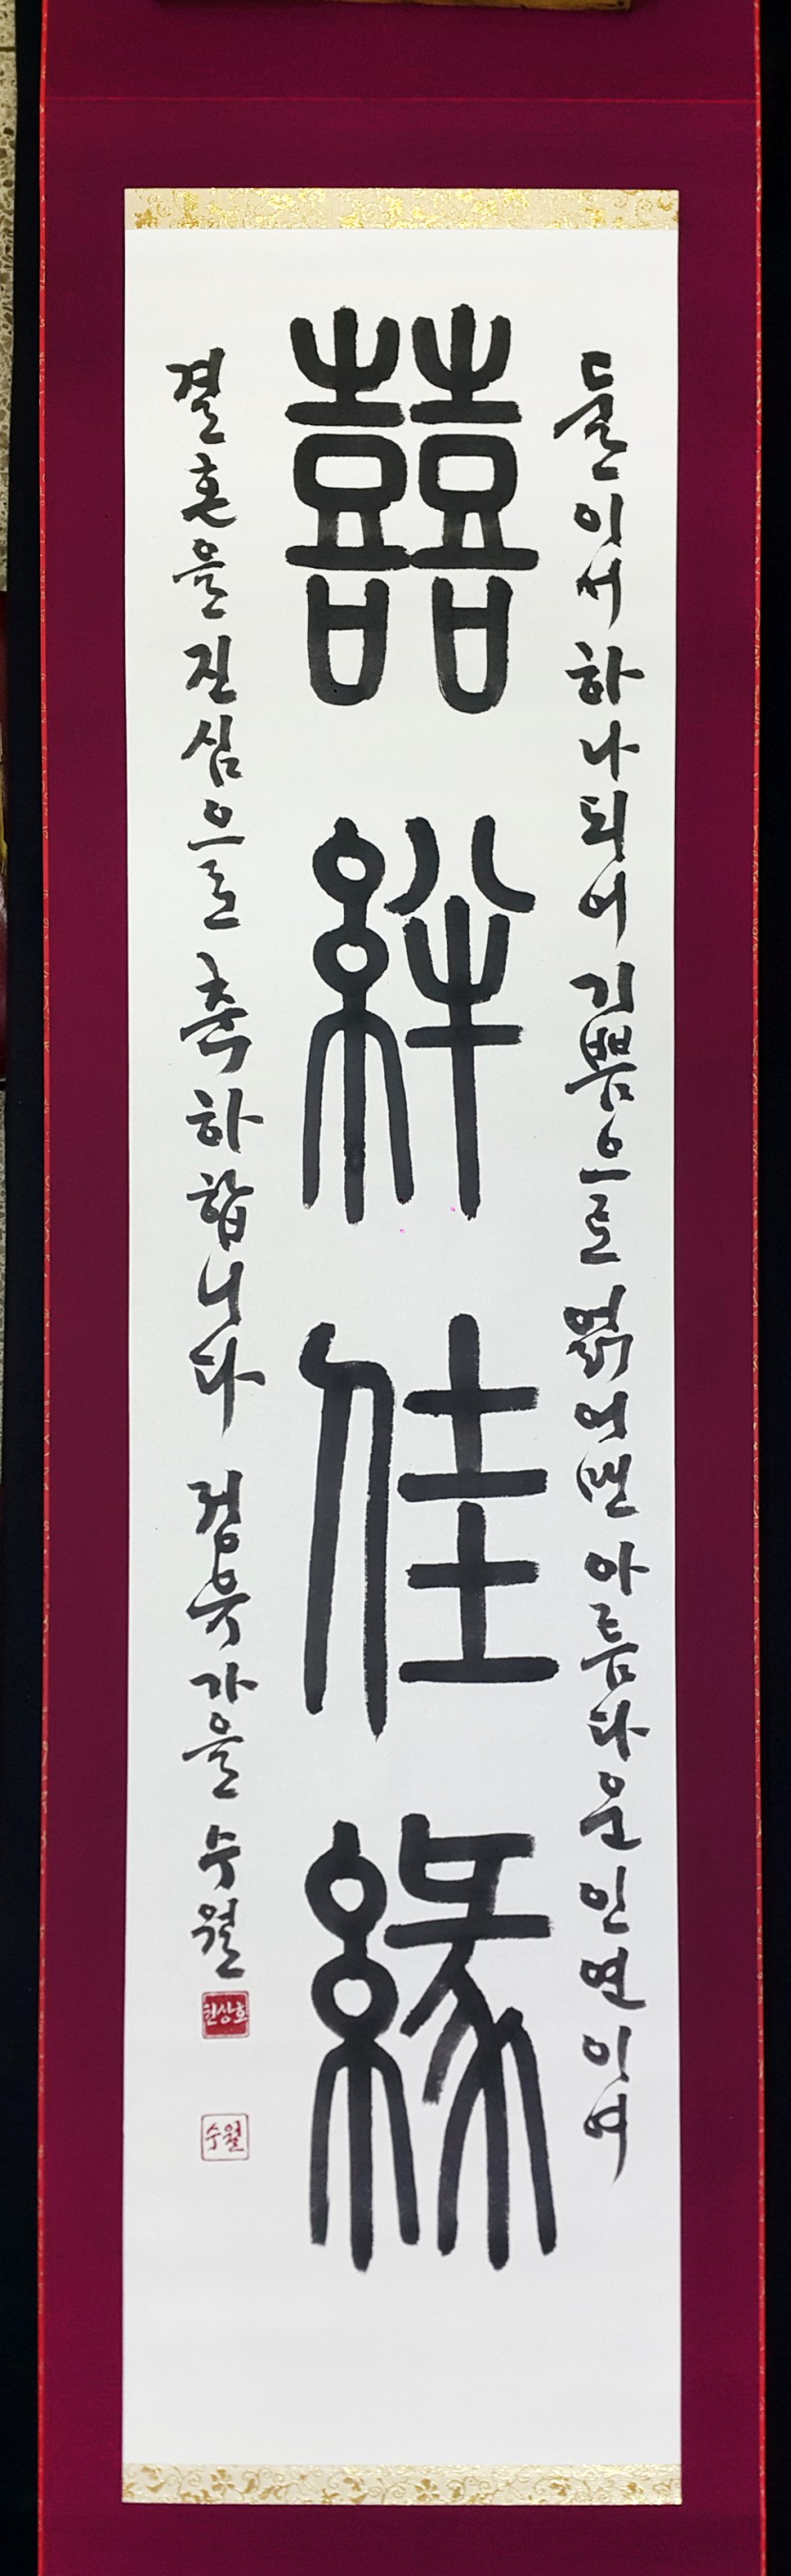 둘이서 하나되어 기쁨으로 얽어맨 아름다운 인연이여
囍絆佳緣
결혼을 진심으로 축하합니다 가을 수월
수월